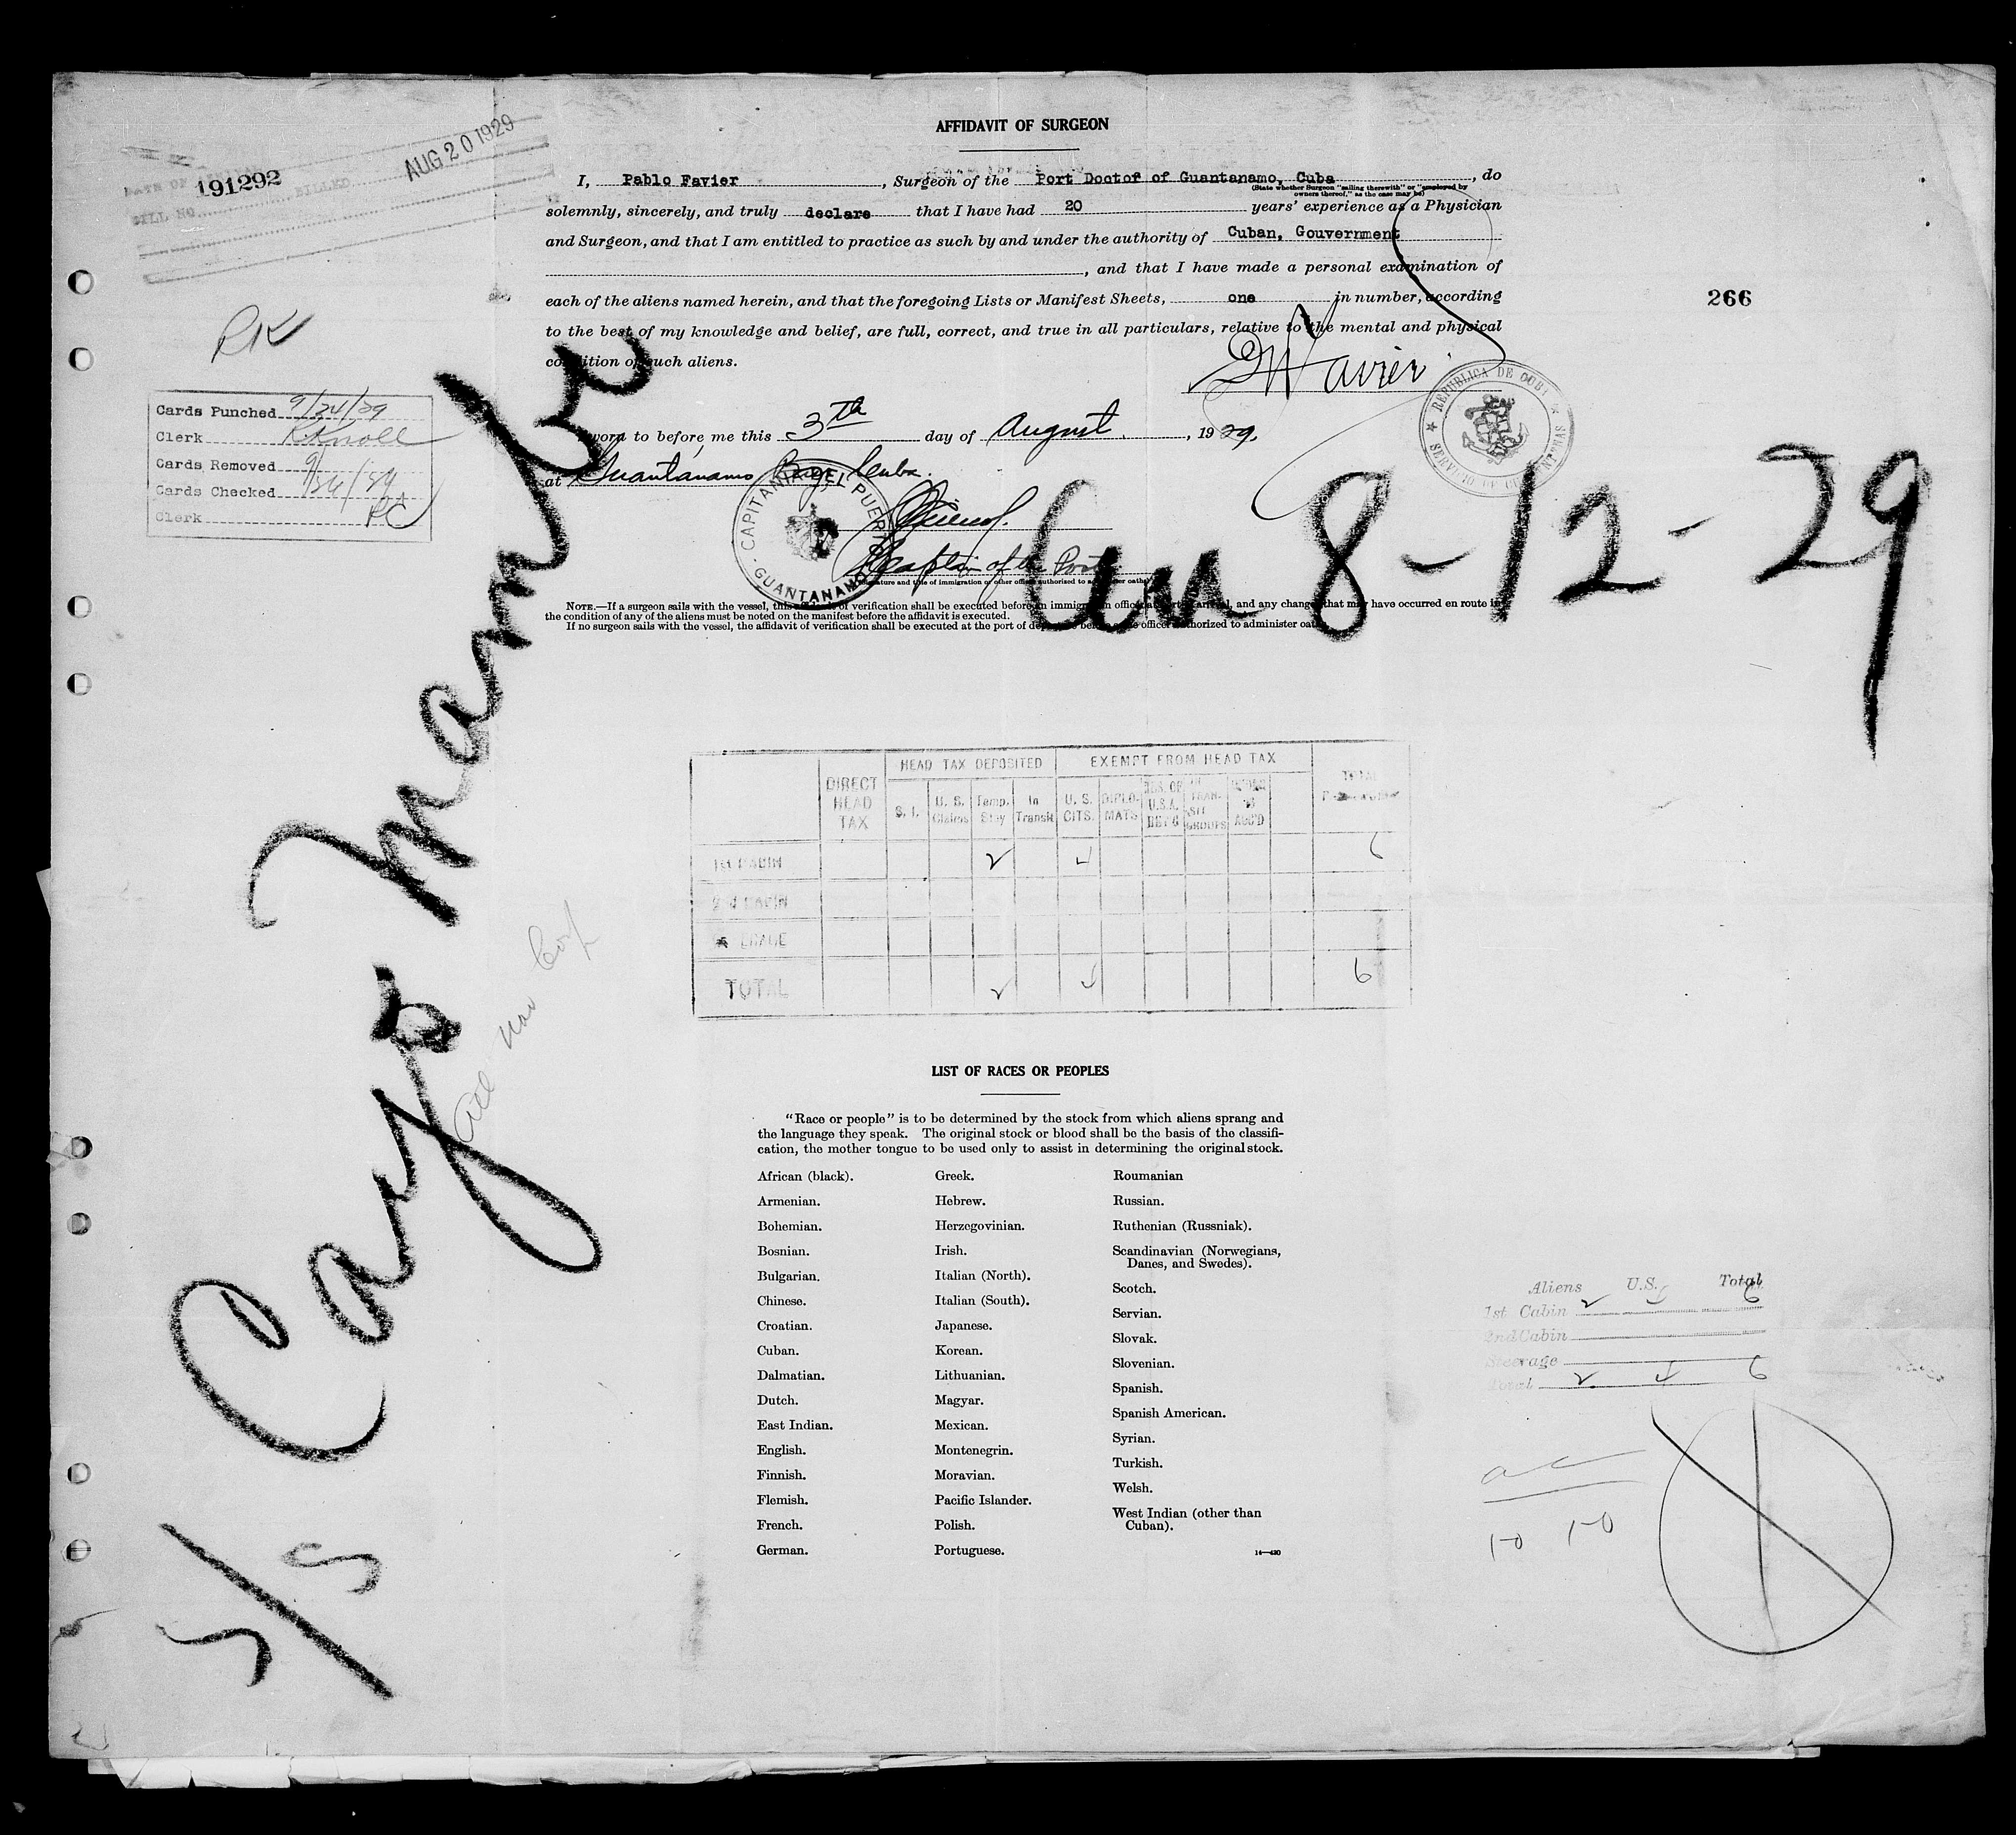 AFFIDAVIT OF SURGEON
DATE OF
191292
BILLED
AUG 20 1929
BILL NO.
I, Pablo Favier, Surgeon of the Port Doctor of Guantanamo, Cuba, do
(State whether Surgeon "sailing therewith" or "employed by
owners thereof," as the case may be)
solemnly, sincerely, and truly declare that I have had 20 years' experience as a Physician
and Surgeon, and that I am entitled to practice as such by and under the authority of Cuban, Gouvernment
, and that I have made a personal examination of
each of the aliens named herein, and that the foregoing Lists or Manifest Sheets, one in number, according
266
to the best of my knowledge and belief, are full, correct, and true in all particulars, relative to the mental and physical
condition of such aliens.
RK
Favier
REPUBLICA DE CUBA
SERVICIO DE
Cards Punched 9/24/29
Clerk RKnoll
Cards Removed 9/
Cards Checked /24/29
Clerk
Sworn to before me this 3th day of August, 1929.
at Guantanamo Bay, Cuba.
CAPITANIA DEL PUERTO
GUANTANAMO
Captain of the Port
(Signature and title of immigration or other officer authorized to administer oaths)
Arr 8-12-29
NOTE.—If a surgeon sails with the vessel, this affidavit of verification shall be executed before an immigration officer at port of arrival, and any changes that may have occurred en route in
the condition of any of the aliens must be noted on the manifest before the affidavit is executed.
If no surgeon sails with the vessel, the affidavit of verification shall be executed at the port of departure before some officer authorized to administer oaths.
S/S Cayo Mambi
DIRECT HEAD TAX
HEAD TAX DEPOSITED
EXEMPT FROM HEAD TAX
TOTAL
S. I.
U. S. Claims
Temp. Stay
In Transit
U. S. CITS.
DIPLO-MATS
RES. OF U.S.A. RET'G
TRAN-SIT GROUPS
1st CABIN 2 4 6
2nd CABIN
STEERAGE
TOTAL 2 4 6
LIST OF RACES OR PEOPLES
"Race or people" is to be determined by the stock from which aliens sprang and
the language they speak. The original stock or blood shall be the basis of the classifi-
cation, the mother tongue to be used only to assist in determining the original stock.
African (black).
Armenian.
Bohemian.
Bosnian.
Bulgarian.
Chinese.
Croatian.
Cuban.
Dalmatian.
Dutch.
East Indian.
English.
Finnish.
Flemish.
French.
German.
Greek.
Hebrew.
Herzegovinian.
Irish.
Italian (North).
Italian (South).
Japanese.
Korean.
Lithuanian.
Magyar.
Mexican.
Montenegrin.
Moravian.
Pacific Islander.
Polish.
Portuguese.
Roumanian
Russian.
Ruthenian (Russniak).
Scandinavian (Norwegians,
Danes, and Swedes).
Scotch.
Servian.
Slovak.
Slovenian.
Spanish.
Spanish American.
Syrian.
Turkish.
Welsh.
West Indian (other than
Cuban).
14—430
Aliens U.S. Total
1st Cabin 2 4 6
2nd Cabin
Steerage
Total 2 4 6